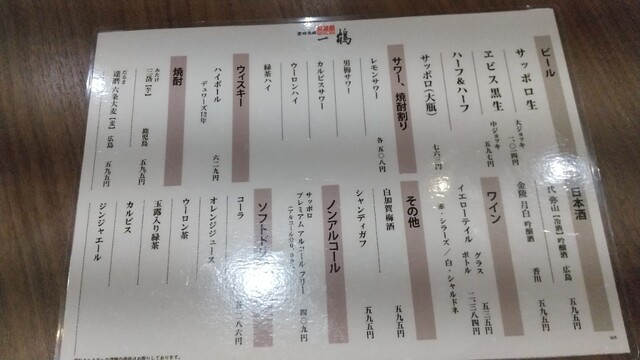 骨付鳥
一鶴
ビール
サッポロ生
大ジョッキ 一、〇二四円
ヱビス黒生
中ジョッキ 五九七円
ハーフ&ハーフ
サッポロ(大瓶)
七六三円
サワー、焼酎割り
レモンサワー
男梅サワー
カルピスサワー
ウーロンハイ
緑茶ハイ
各五〇八円
ウィスキー
ハイボール
デュワーズ12年
六二九円
焼酎
三岳【芋】
鹿児島
五九五円
達磨 六条大麦【麦】
広島
五九五円
日本酒
弥山【冷酒】吟醸酒
広島
五九五円
金陵 月白 吟醸酒
香川
五九五円
ワイン
グラス
五三五円
イエローテイル ボトル
二、三八四円
赤・シラーズ/白・シャルドネ
その他
白加賀 梅酒
五九五円
シャンディガフ
五九五円
ノンアルコール
サッポロ
プレミアム アルコール フリー
四〇九円
ソフトドリ
コーラ
オレンジジュース
ウーロン茶
玉露入り緑茶
カルピス
ジンジャエール
八六円